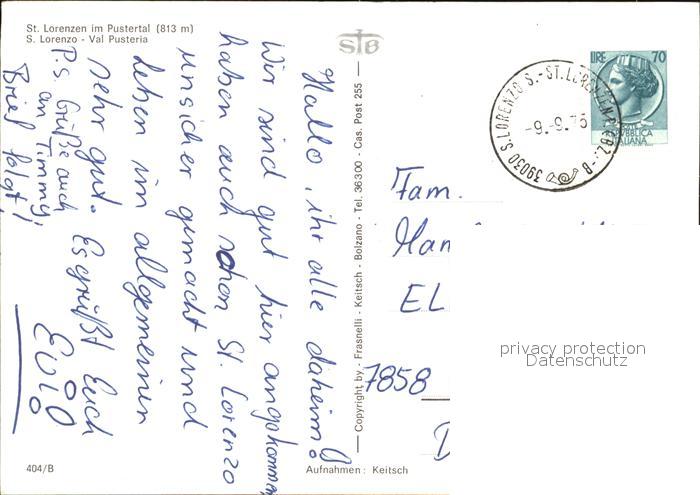 St. Lorenzen im Pustertal (813 m)
S. Lorenzo - Val Pusteria
STB
Hallo, ihr alle daheim!
Wir sind gut hier angekommen
haben auch schon St. Lorenzo
unsicher gemacht und
leben im allgemeinen
sehr gut. Es grüßt Euch
P.S. Grüße auch
an Timmy,
Brief folgt!
404/B
Copyright by - Frasnelli - Keitsch - Bolzano - Tel. 36300 - Cas. Post 255
Aufnahmen: Keitsch
LIRE 70
REPUBBLICA
ITALIANA
39030 S. LORENZO S. - ST. LOREN
-9.-9.75
Fam.
Han
EL
7858
D
privacy protection
Datenschutz